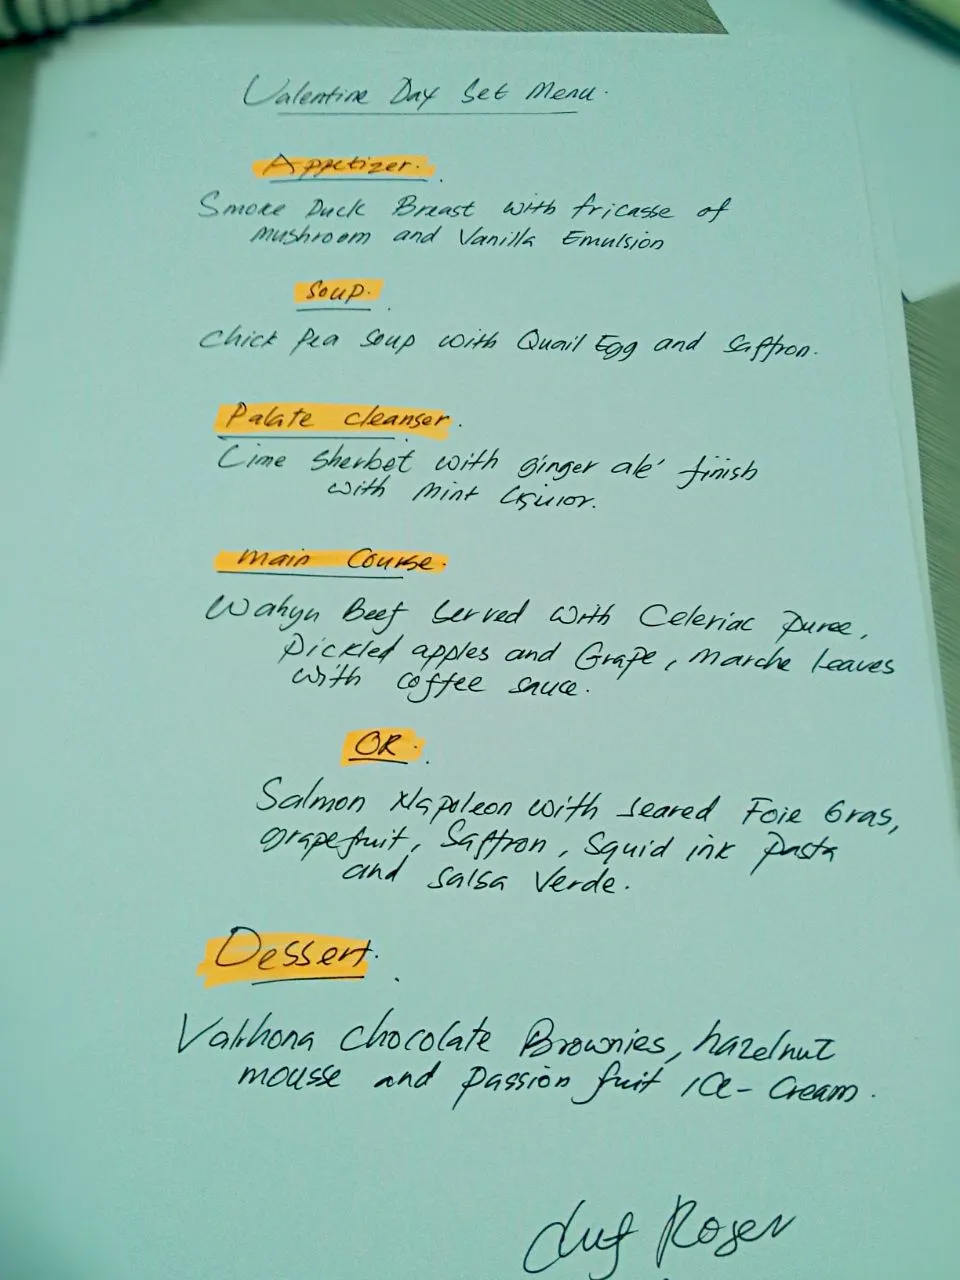 Valentine Day Set Menu.
Appetizer.
Smoke Duck Breast with fricasse of
mushroom and Vanilla Emulsion
Soup.
Chick Pea Soup with Quail Egg and Saffron.
Palate cleanser.
Lime Sherbet with ginger ale' finish
with Mint
Main Course.
Wahyu Beef Served with Celeriac Puree,
Pickled apples and Grape, Marche Leaves
with coffee sauce.
OR.
Salmon Napoleon with Seared Foie Gras,
grapefruit, Saffron, Squid ink Pasta
and Salsa Verde.
Dessert.
Valrhona Chocolate Brownies, hazelnut
mousse and Passion fruit ice-cream.